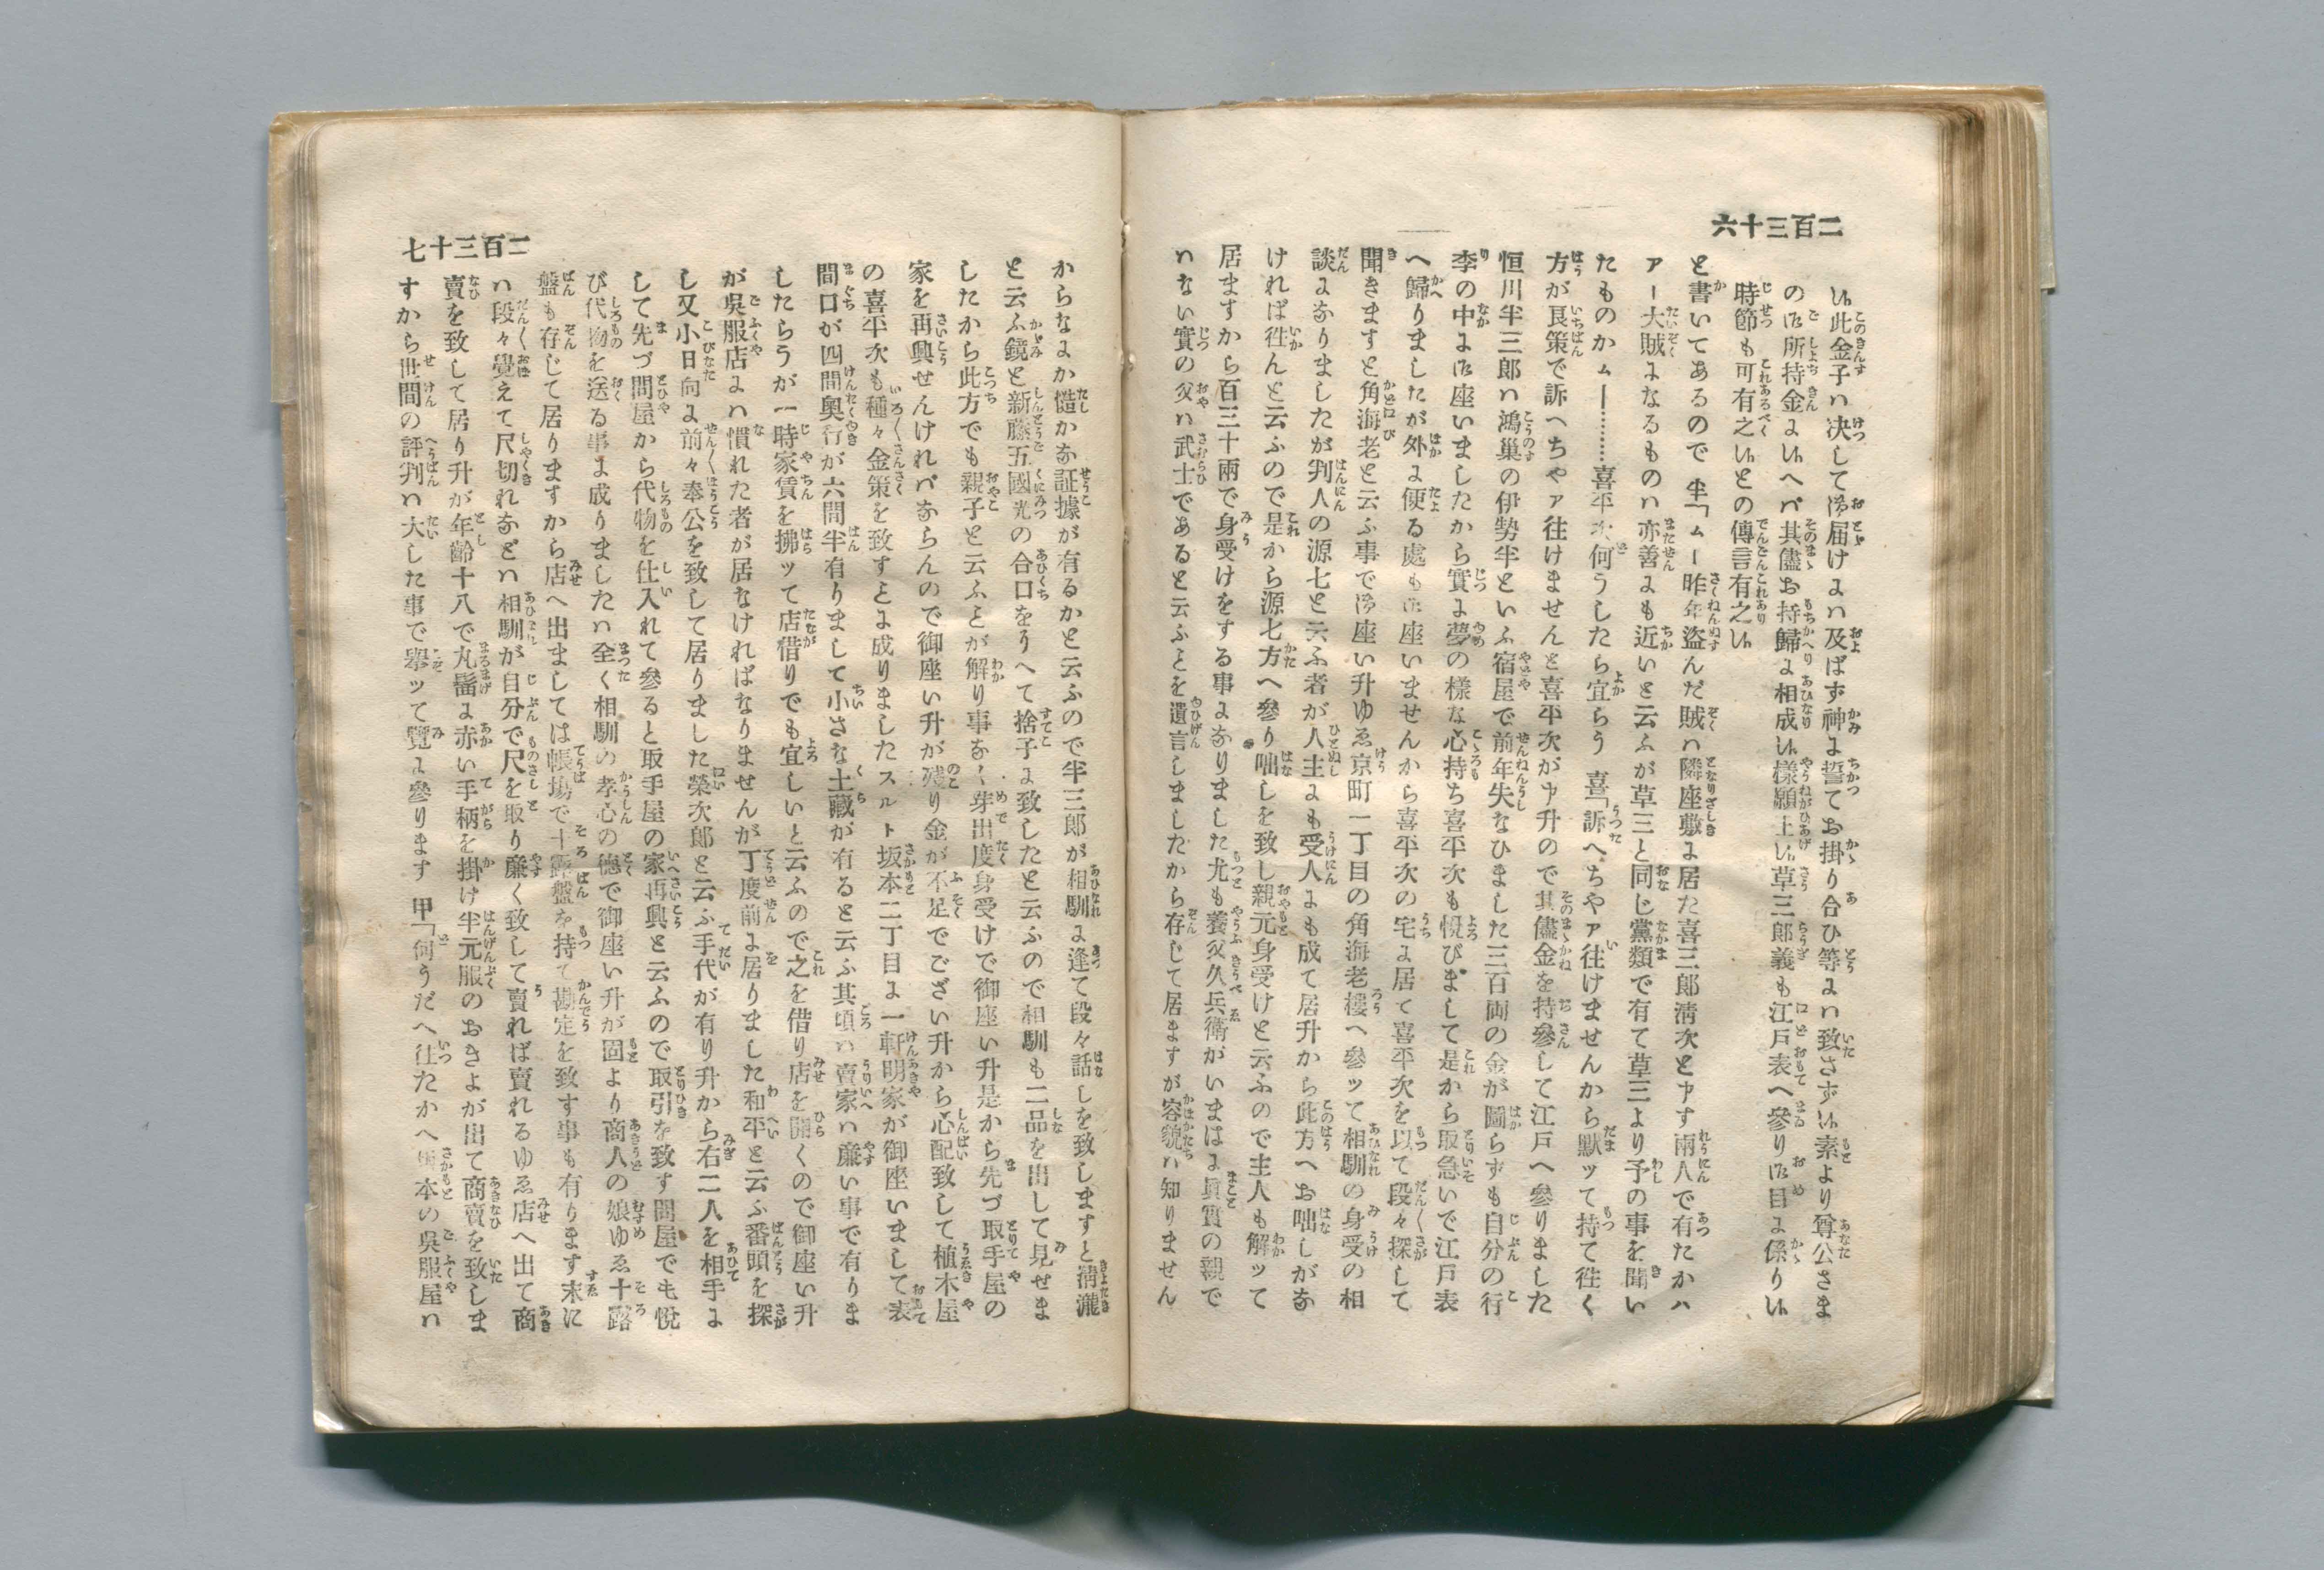 二百三十六
い此金子ハ决して御届けにハ及ばず神に誓てお掛り合ひ等にハ致さずい素より尊公さま
の御所持金にいへバ其儘お持歸に相成い樣願上い草三郎義も江戸表へ參り御目に係りい
時節も可有之いとの傳言有之い
と書いてあるので 半「ムー昨年盗んだ賊ハ隣座敷に居た喜三郎淸次と申す兩人で有たかハ
アー大賊になるものハ亦善にも近いと云ふが草三と同じ黨類で有て草三より予の事を聞い
たものかムー………喜平次何うしたら宜らう 喜「訴へちやァ往けませんから默ッて持て徃く
方が良策で訴へちやァ往けませんと喜平次が申升ので其儘金を持參して江戸へ參りました
恒川半三郎ハ鴻巣の伊勢半といふ宿屋で前年失なひました三百両の金が圖らずも自分の行
李の中に御座いましたから實に夢の樣な心持ち喜平次も悦びまして是から取急いで江戸表
へ歸りましたが外に便る處も御座いませんから喜平次の宅に居て喜平次を以て段々探して
聞きますと角海老と云ふ事で御座い升ゆゑ京町一丁目の角海老樓へ參ッて相馴の身受の相
談になりましたが判人の源七と云ふ者が人主にも受人にも成て居升から此方へお咄しがな
ければ徃んと云ふので是から源七方へ參り咄しを致し親元身受けと云ふので主人も解ッて
居ますから百三十兩で身受けをする事になりました尤も養父久兵衛がいまはに眞實の親で
ハない實の父ハ武士であると云ふとを遺言しましたから存じて居ますが容貌ハ知りません
二百三十七
からなにか慥かな証據が有るかと云ふので半三郎が相馴に逢て段々話しを致しますと淸瀧
と云ふ鏡と新藤五國光の合口をうへて捨子に致したと云ふので相馴も二品を出して見せま
したから此方でも親子と云ふとが解り事なく芽出度身受けで御座い升是から先づ取手屋の
家を再興せんけれバならんので御座い升が殘り金が不足でござい升から心配致して植木屋
の喜平次も種々金策を致すとに成りましたスルト坂本二丁目に一軒明家が御座いまして表
間口が四間奧行が六間半有りまして小さな土藏が有ると云ふ其頃ハ賣家ハ廉い事で有りま
したらうが一時家賃を拂ッて店借りでも宜しいと云ふので之を借り店を開くので御座い升
が呉服店にハ慣れた者が居なければなりませんが丁度前に居りました和平と云ふ番頭を探
し又小日向に前々奉公を致して居りました榮次郎と云ふ手代が有り升から右二人を相手に
して先づ問屋から代物を仕入れて參ると取手屋の家再興と云ふので取引を致す問屋でも悅
び代物を送る事に成りましたハ全く相馴の孝心の德で御座い升が固より商人の娘ゆゑ十露
盤も存じて居りますから店へ出ましては帳塲で十露盤を持て勘定を致す事も有ります末に
ハ段々覺えて尺切れなどハ相馴が自分で尺を取り廉く致して賣れば賣れるゆゑ店へ出て商
賣を致して居り升が年齡十八で丸髷に赤い手柄を掛け半元服のおきよが出て商賣を致しま
すから世間の評判ハ大した事で擧ッて覽に參ります 甲「何うだへ徃たかへ坂本の呉服屋ハ